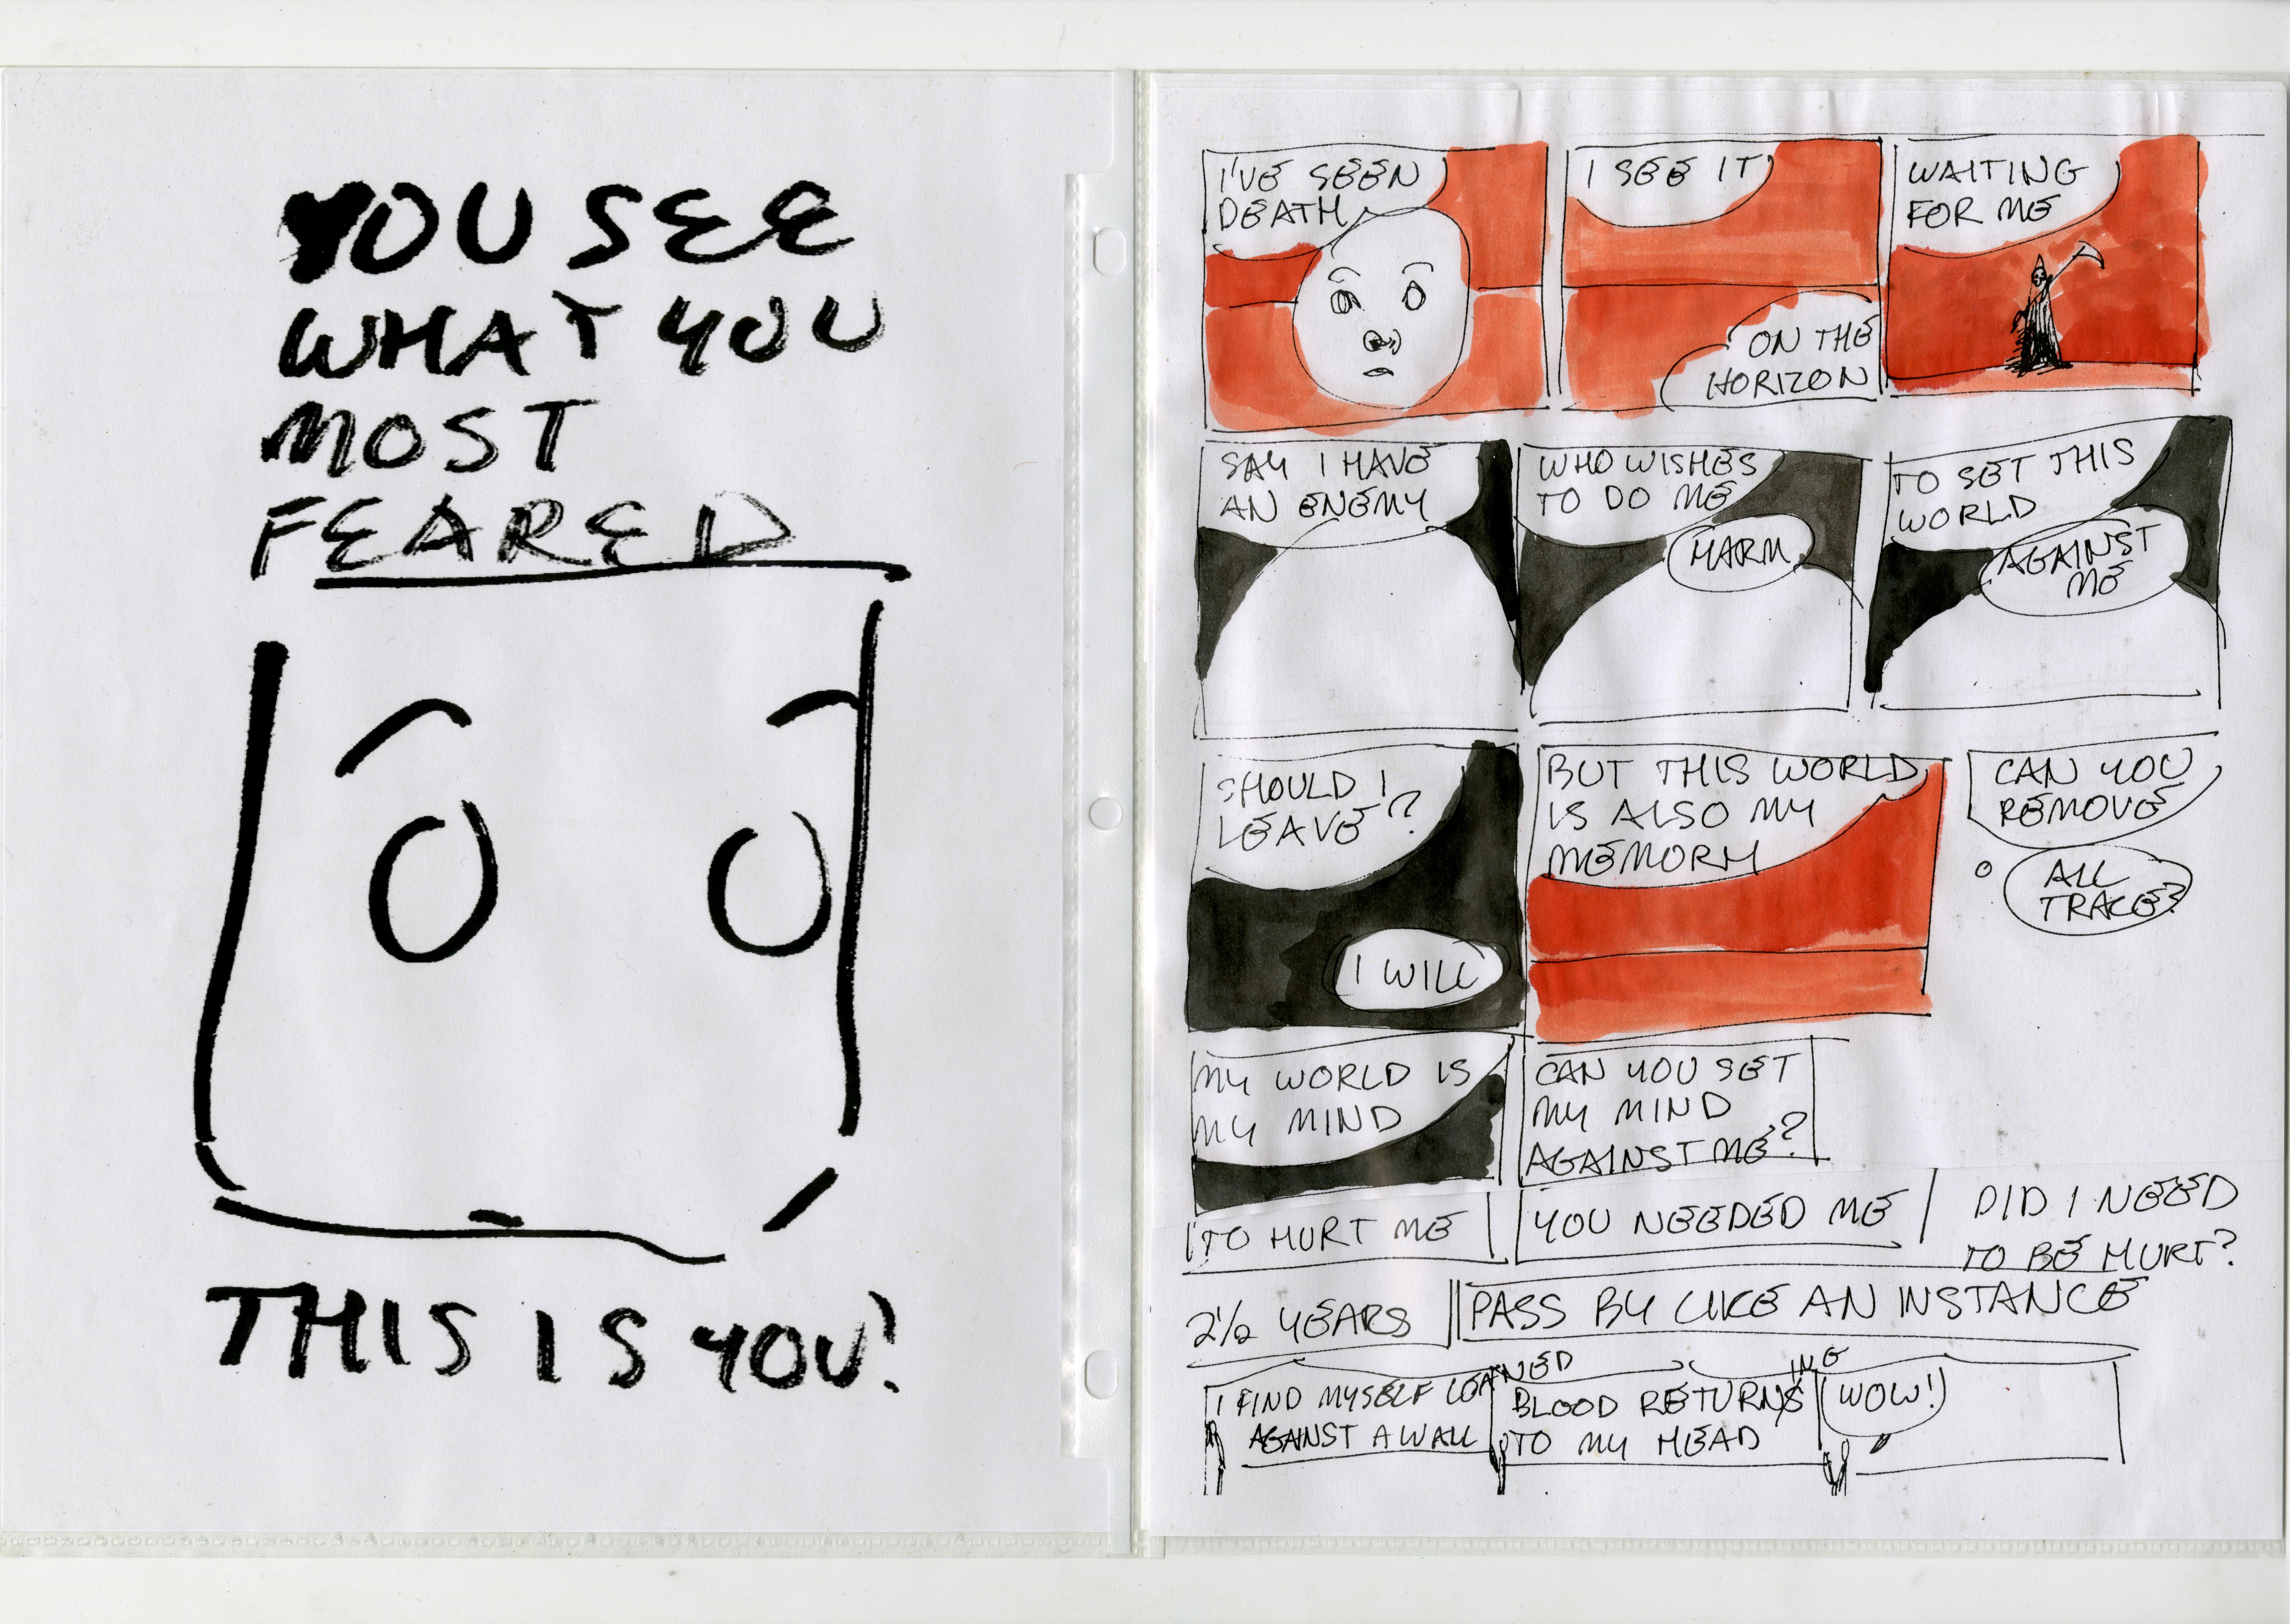 YOU SEE
WHAT YOU
MOST
FEARED
THIS IS YOU!
I'VE SEEN
DEATH
I SEE IT
ON THE
HORIZON
WAITING
FOR ME
SAY I HAVE
AN ENEMY
WHO WISHES
TO DO ME
HARM
TO SET THIS
WORLD
AGAINST
ME
SHOULD I
LEAVE?
I WILL
BUT THIS WORLD
IS ALSO MY
MEMORY
CAN YOU
REMOVE
ALL
TRACE?
MY WORLD IS
MY MIND
CAN YOU SET
MY MIND
AGAINST ME?
TO HURT ME
YOU NEEDED ME
DID I NEED
TO BE HURT?
2½ YEARS
PASS BY LIKE AN INSTANCE
I FIND MYSELF LEANED
AGAINST A WALL
BLOOD RETURNING
TO MY HEAD
WOW!